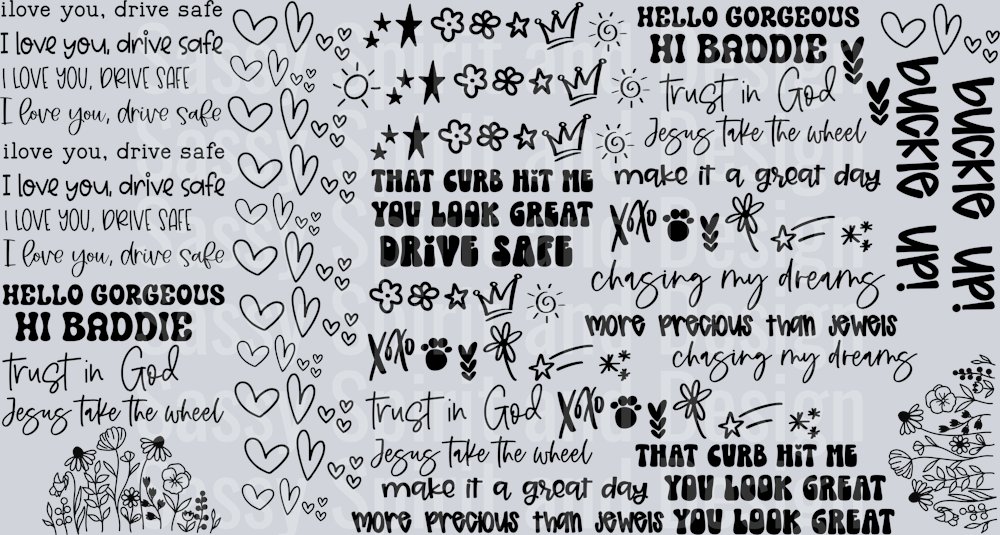 ilove you, drive safe
I love you, drive safe
I LOVE YOU, DRIVE SAFE
I love you, drive safe
ilove you, drive safe
I love you, drive safe
I LOVE YOU, DRIVE SAFE
I love you, drive safe
HELLO GORGEOUS
HI BADDIE
trust in God
Jesus take the wheel
THAT CURB HIT ME
YOU LOOK GREAT
DRIVE SAFE
XOXO
trust in God
XOXO
Jesus take the wheel
make it a great day
more precious than jewels
HELLO GORGEOUS
HI BADDIE
trust in God
Jesus take the wheel
make it a great day
XOXO
chasing my dreams
more precious than jewels
chasing my dreams
THAT CURB HIT ME
YOU LOOK GREAT
YOU LOOK GREAT
buckle up!
buckle up!
Sassy Spirit and Design